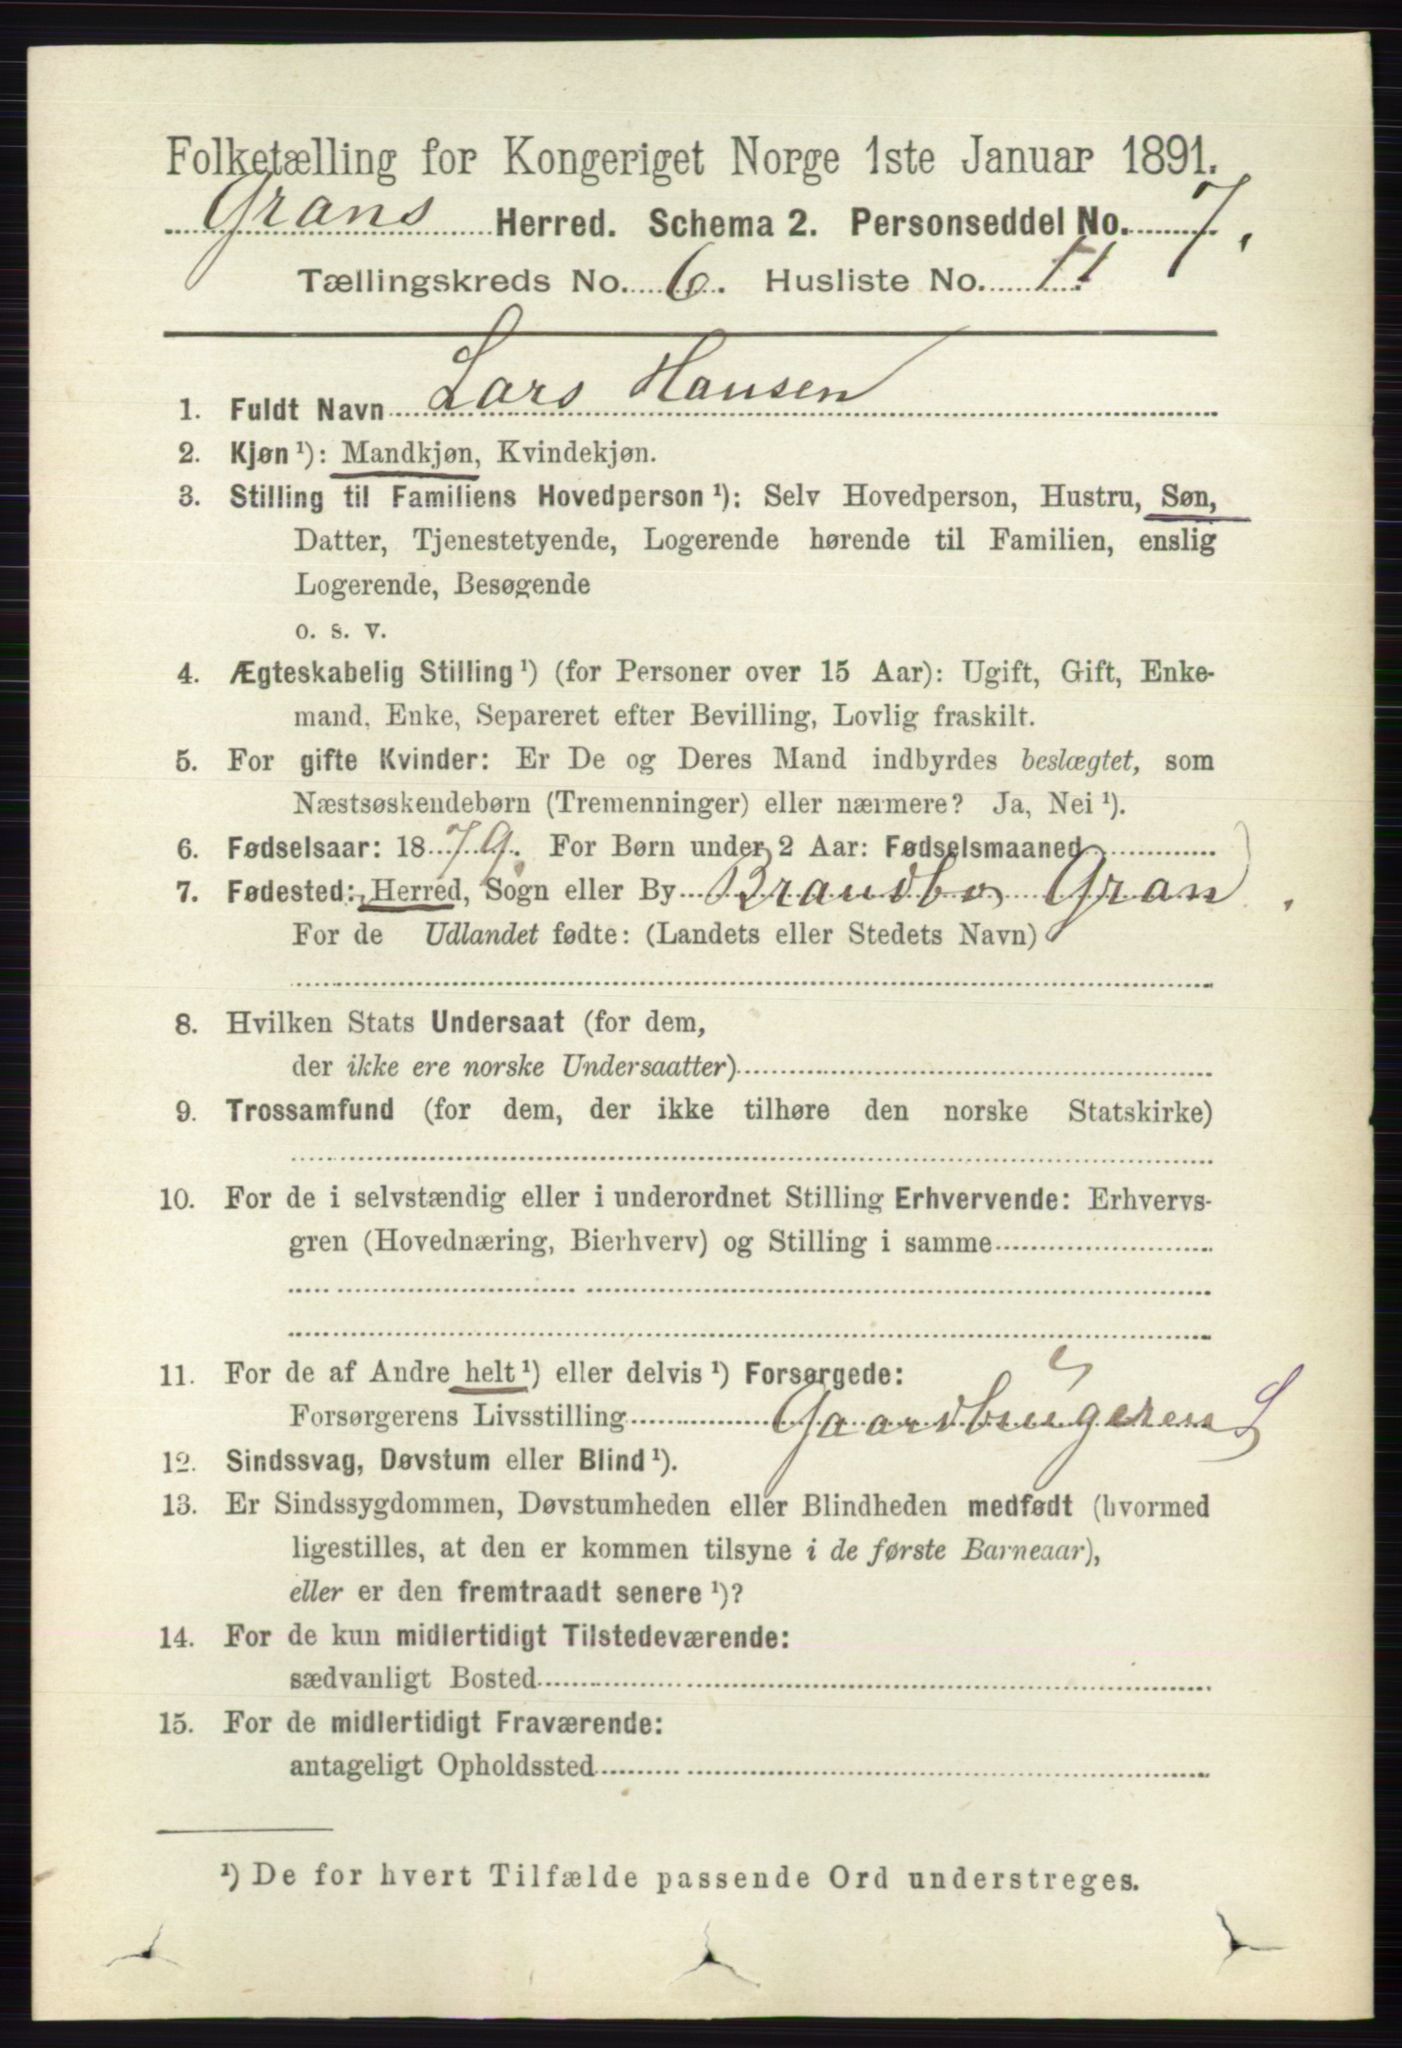 Folketælling for Kongeriget Norge 1ste Januar 1891.
Grans Herred. Schema 2. Personseddel No. 7.
Tællingskreds No. 6. Husliste No. 11
1. Fuldt Navn Lars Hansen
2. Kjøn ¹): Mandkjøn, Kvindekjøn.
3. Stilling til Familiens Hovedperson ¹): Selv Hovedperson, Hustru, Søn,
Datter, Tjenestetyende, Logerende hørende til Familien, enslig
Logerende, Besøgende
o. s. v.
4. Ægteskabelig Stilling ¹) (for Personer over 15 Aar): Ugift, Gift, Enke-
mand, Enke, Separeret efter Bevilling, Lovlig fraskilt.
5. For gifte Kvinder: Er De og Deres Mand indbyrdes beslægtet, som
Næstsøskendebørn (Tremenninger) eller nærmere? Ja, Nei ¹).
6. Fødselsaar: 1879. For Børn under 2 Aar: Fødselsmaaned
7. Fødested: Herred, Sogn eller By Brandbo Gran
For de Udlandet fødte: (Landets eller Stedets Navn)
8. Hvilken Stats Undersaat (for dem,
der ikke ere norske Undersaatter)
9. Trossamfund (for dem, der ikke tilhøre den norske Statskirke)
10. For de i selvstændig eller i underordnet Stilling Erhvervende: Erhvervs-
gren (Hovednæring, Bierhverv) og Stilling i samme
11. For de af Andre helt ¹) eller delvis ¹) Forsørgede:
Forsørgerens Livsstilling Gaardbrugeren S
12. Sindssvag, Døvstum eller Blind ¹).
13. Er Sindssygdommen, Døvstumheden eller Blindheden medfødt (hvormed
ligestilles, at den er kommen tilsyne i de første Barneaar),
eller er den fremtraadt senere ¹)?
14. For de kun midlertidigt Tilstedeværende:
sædvanligt Bosted
15. For de midlertidigt Fraværende:
antageligt Opholdssted
¹) De for hvert Tilfælde passende Ord understreges.